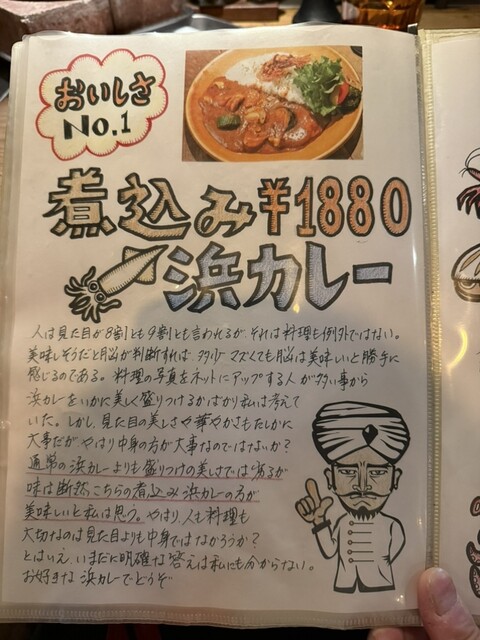 おいしさ
No.1
煮込み¥1880
浜カレー
人は見た目が8割とも9割とも言われるが、それは料理も例外ではない。
美味しそうだと脳が判断すれば、多少マズくても脳は美味しいと勝手に
感じるのである。料理の写真をネットにアップする人が多い事から
浜カレーをいかに美しく盛りつけるかばかり私は考えて
いた。しかし、見た目の美しさや華やかさもたしかに
大事だがやはり中身の方が大事なのではないか?
通常の浜カレーよりも盛りつけの美しさでは劣るが
味は断然こちらの煮込み浜カレーの方が
美味しいと私は思う。やはり、人も料理も
大切なのは見た目よりも中身ではなかろうか?
とはいえ、いまだに明確な答えは私にも分からない。
お好きな浜カレーでどうぞ